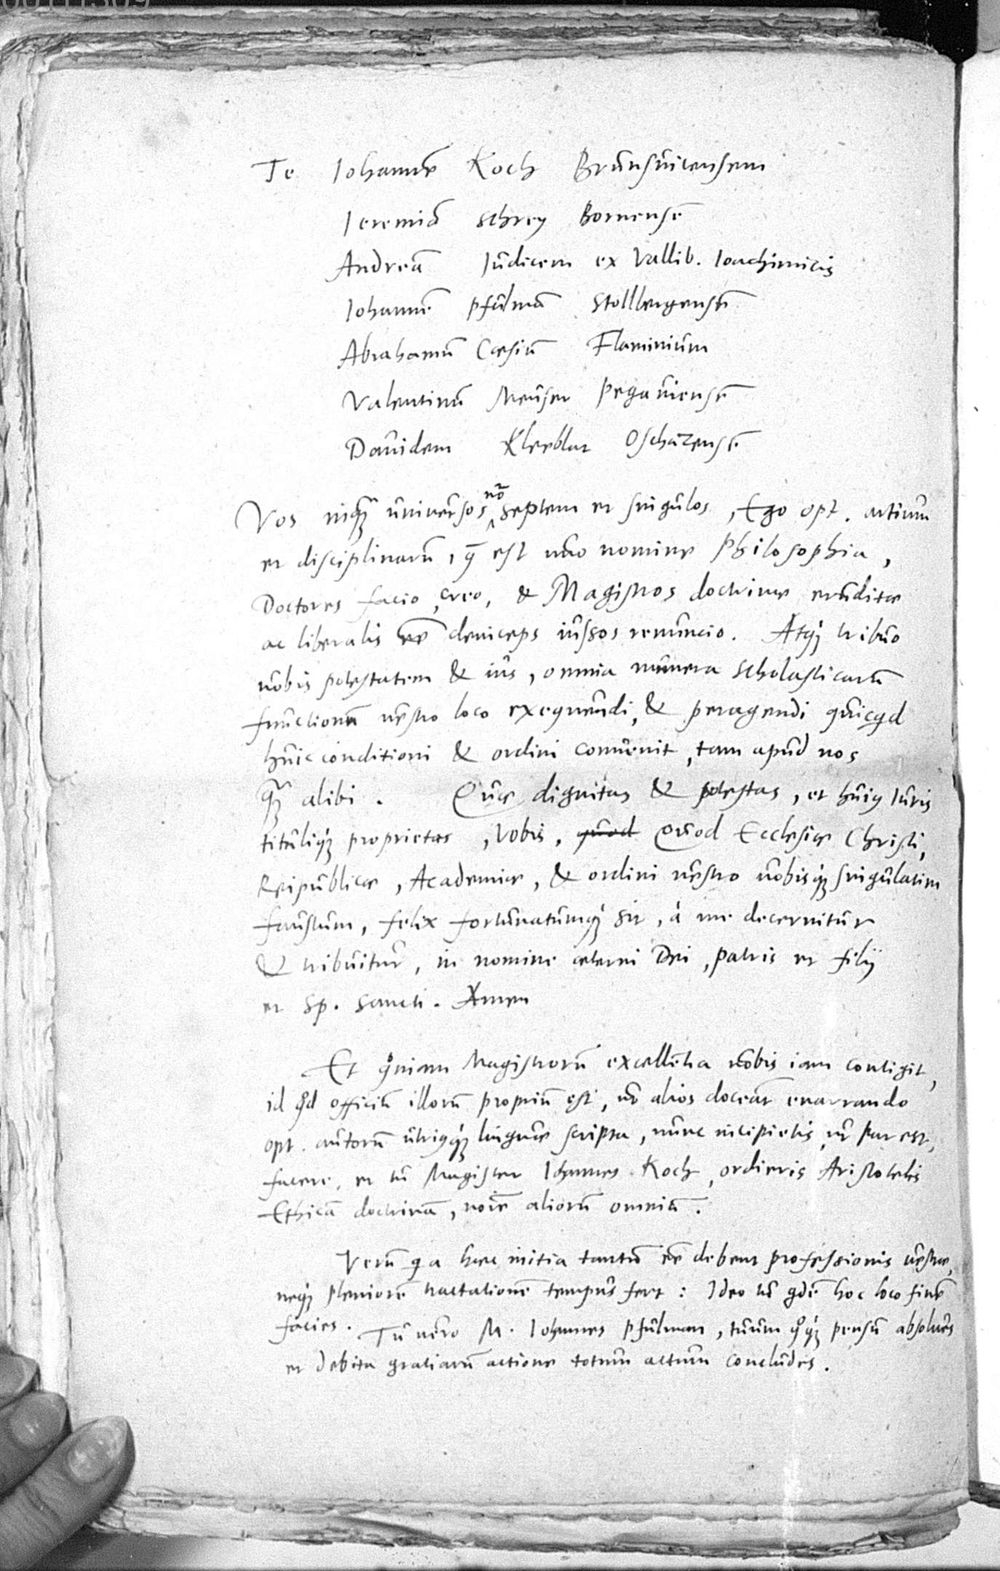 Te Iohannē Koch Brunsuicensem
Ieremiā Schrey Bornensē
Andreā Iudicem ex Vallib. Ioachimicis
Iohannē Pfulman Stollbergensē
Abrahamū Cæsiū Flaminium
Valentinū Meuser Pegauiensē
Dauidem Kleeblat Oschazensē
Vos inquā uniuersos nō septem et singulos, Ego opt. artium
et disciplinarū, q̄ est uno nomine Philosophia,
Doctores facio, creo, & Magistros doctrinæ eruditæ
ac liberalis eē deinceps iussos renuncio. Atq; tribuo
uobis potestatem & ius, omnia munera scholasticarū
functionū uestro loco exequendi, & peragendi quicqd
huic conditioni & ordini conuenit, tam apud nos
quā alibi. Quæ dignitas & potestas, et huiq Iuris
tituliq; proprietas, Vobis, quod Quod Ecclesiæ Christi,
Reipublicæ, Academiæ, & ordini uestro uobisq; singulatim
faustum, felix fortunatumq; sit, à me decernitur
& tribuitur, in nomine æterni Dei, patris et filij
et Sp. Sancti. Amen
Et quoniam Magistrorū excellētia uobis iam contigit,
id qd officiū illorū propriū est, ut alios doceāt enarrando
opt. autorū utriusq; linguæ scripta, nunc incipietis, ut par est,
facere, et tu Magister Iohannes Koch, ordieris Aristotelis
Ethicā doctrinā, noīe aliorū omniū.
Verū q a hæc initia tantū eē debent professionis uestræ,
neq; pleniorē tractationē tempus fert: Ideo tu qdē hoc loco finē
facies. Tu uero M. Iohannes Pfulman, tuum qq; pensū absolues
et debita gratiarū actione totum actum concludes.